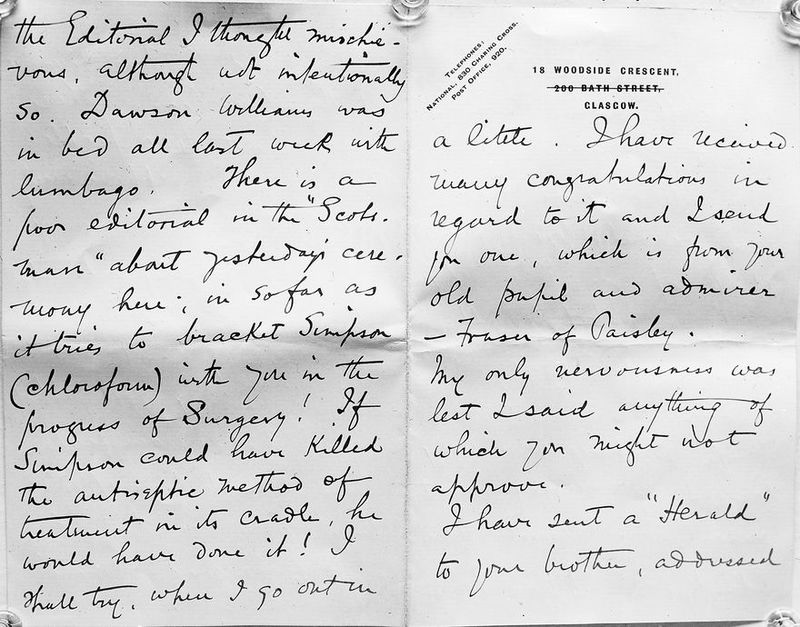 the Editorial I thought mischie-
vous, although not intentionally
so. Dawson Williams was
in bed all last week with
lumbago. There is a
poor editorial in the "Scots-
man" about yesterday's cere-
mony here; in so far as
it tries to bracket Simpson
(chloroform) with you in the
progress of Surgery! If
Simpson could have killed
the antiseptic method of
treatment in its cradle, he
would have done it! I
shall try, when I go out in
TELEPHONES:
NATIONAL, 830 CHARING CROSS.
POST OFFICE, 920.
18 WOODSIDE CRESCENT,
200 BATH STREET,
GLASGOW.
a little. I have received
many congratulations in
regard to it and I send
you one, which is from your
old pupil and admirer
— Fraser of Paisley.
My only nervousness was
lest I said anything of
which you might not
approve.
I have sent a "Herald"
to your brother, addressed